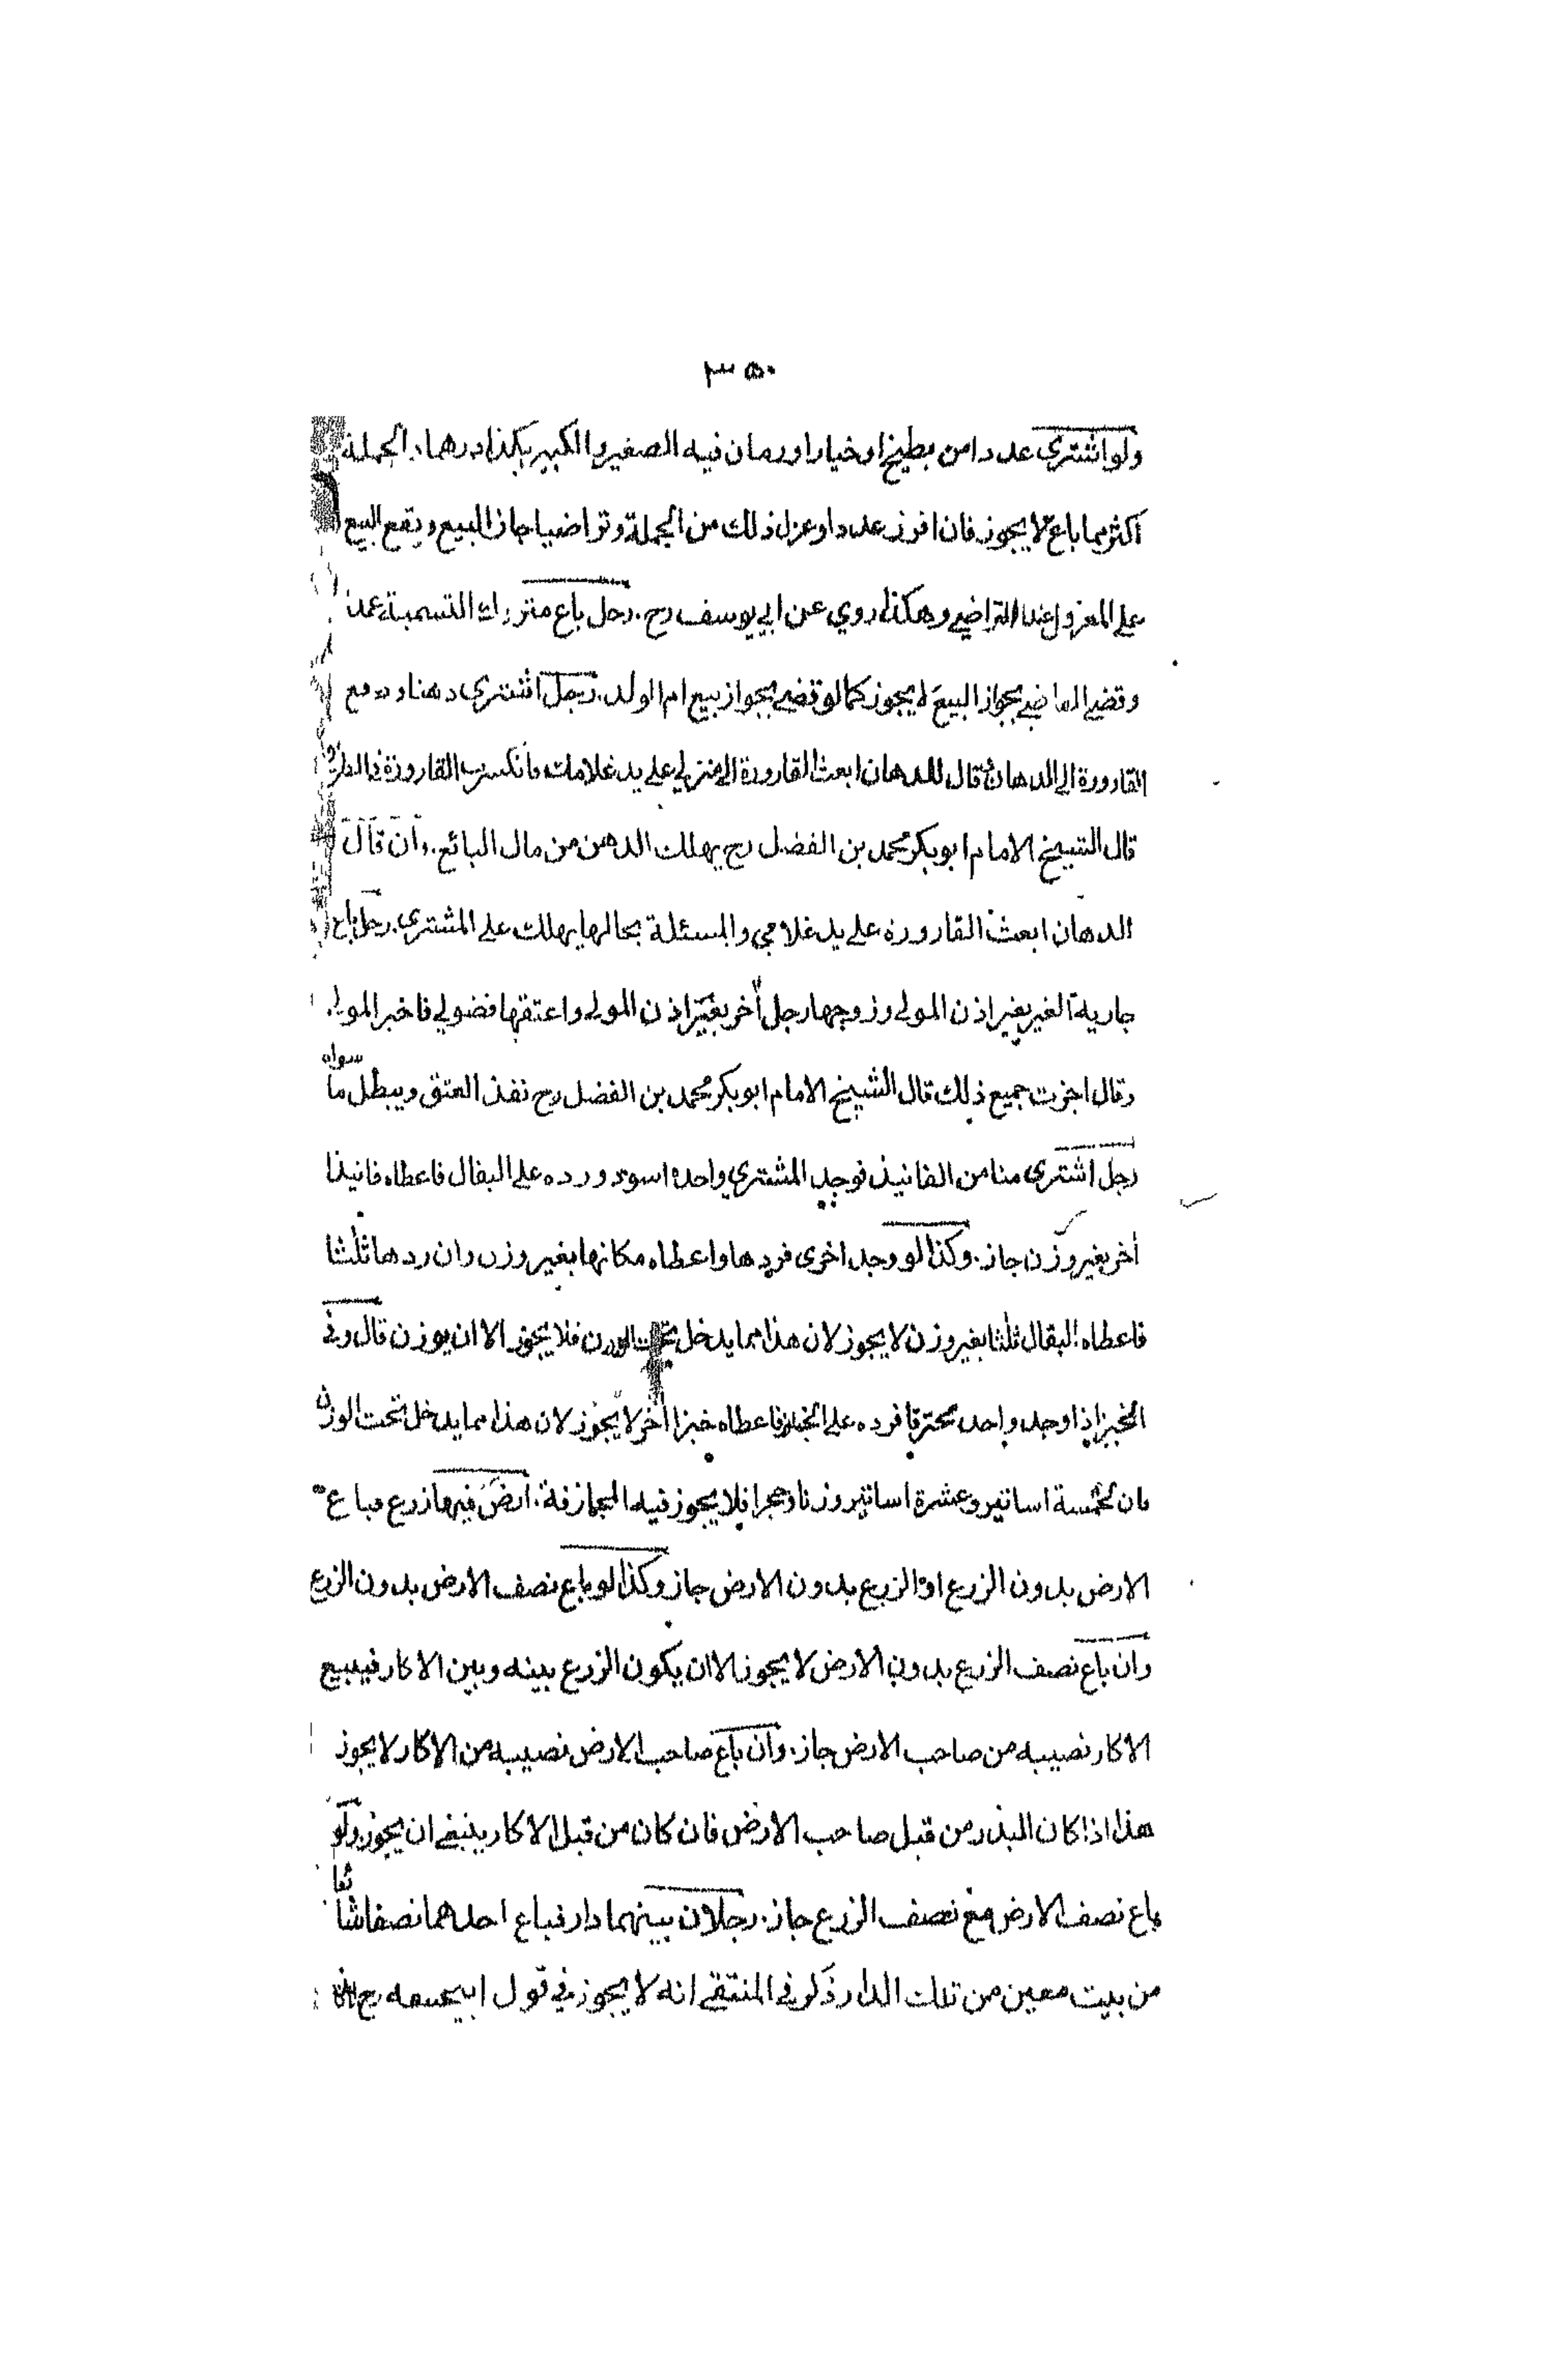 ٣٥٠
ولو اشترى عددا من بطيخ او خيار او رمان فيه الصغير والكبير بكذا درهما والجملة
اكثر مما باع لا يجوز فان افرز عددا وعزل ذلك من الجملة وتراضيا جاز البيع ويقع البيع
على المعزول عند التراضي وهكذا روي عن ابي يوسف رح . رجل باع متروك التسمية عمدا
وقضى القاضي بجواز البيع لا يجوز كما لو قضى بجواز بيع ام الولد . رجل اشترى دهنا ودفع
القارورة الى الدهان وقال للدهان ابعث القارورة الى منزلي على يد غلامك فانكسرت القارورة في الطريق
قال الشيخ الامام ابو بكر محمد بن الفضل رح يهلك الدهن من مال البائع . وان قال
الدهان ابعث القارورة على يد غلامي والمسئلة بحالها يهلك على المشتري . رجل باع
جارية الغير بغير اذن المولى وزوجها رجل آخر بغير اذن المولى واعتقها فضولي فاخبر المولى
وقال اجزت جميع ذلك قال الشيخ الامام ابو بكر محمد بن الفضل رح نفذ العتق ويبطل ما سواه
رجل اشترى منا من الفانيذ فوجد المشتري واحدا اسود ورده على البقال فاعطاه فانيذا
آخر بغير وزن جاز . وكذا لو وجد اخرى فردها واعطاه مكانها بغير وزن وان ردها ثلثا
فاعطاه البقال ثلثا بغير وزن لا يجوز لان هذا مما يدخل تحت الوزن فلا يجوز الا ان يوزن قال وفي
الخبز اذا وجد واحد محترقا فرده على الخباز فاعطاه خبزا آخر لا يجوز لان هذا مما يدخل تحت الوزن
فان لخمسة اساتير وعشرة اساتير وزنا وحجرا فلا يجوز فيه المجازفة . ارض فيها زرع فباع
الارض بدون الزرع او الزرع بدون الارض جاز وكذا لو باع نصف الارض بدون الزرع
وان باع نصف الزرع بدون الارض لا يجوز الا ان يكون الزرع بينه وبين الاكار فيبيع
الاكار نصيبه من صاحب الارض جاز . وان باع صاحب الارض نصيبه من الاكار لا يجوز
هذا اذا كان البذر من قبل صاحب الارض فان كان من قبل الاكار ينبغي ان يجوز ولو
باع نصف الارض مع نصف الزرع جاز . رجلان بينهما دار فباع احدهما نصفا شائعا
من بيت معين من تلك الدار ذكر في المنتقى انه لا يجوز في قول ابي حنيفة رح